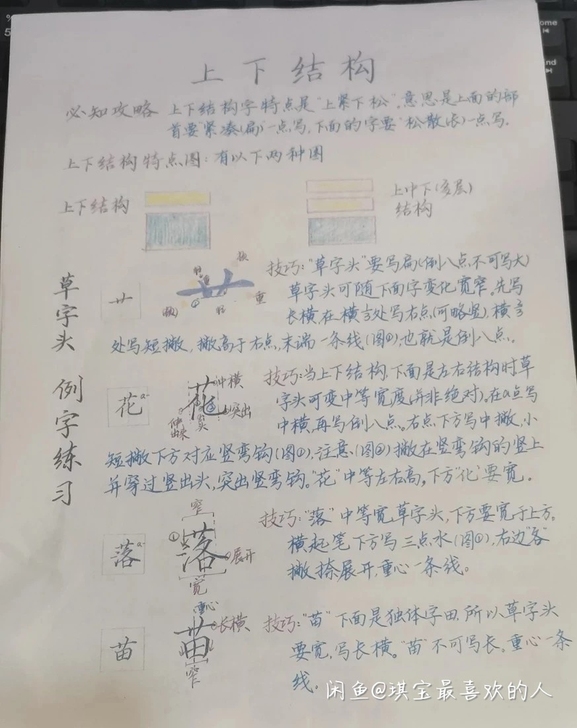 上下结构
必知攻略 上下结构字特点是"上紧下松",意思是上面的部
首要"紧凑(扁)一点写,下面的字要"松散(长)一点写.
上下结构特点图:有以下两种图
上下结构
上中下(多层)
结构
草字头 例字练习
艹
轻
重
技巧:"草字头"要写扁(倒八点,不可写大)
草字头可随下面字变化宽窄,先写
长横,在横
处写右点(可略竖),横
处写短撇,撇高于右点,末端一条线(图①),也就是倒八点。
花
中横
突出
伸出来
技巧:当上下结构,下面是左右结构时草
字头可变中等宽度(并非绝对)。在a点写
中横,再写倒八点。右点下方写中撇,小
短撇下方对应竖弯钩(图①),注意:(图②)撇在竖弯钩的竖上
并穿过竖出头,突出竖弯钩。"花"中等左右高。下方"化"要宽。
落
窄
展开
宽
技巧:"落"中等宽草字头,下方要宽于上方。
横起笔下方写三点水(图①),右边"各"
撇捺展开,重心一条线。
苗
重心
长横
窄
技巧:"苗"下面是独体字田,所以草字头
要宽,写长横。"苗"不可写长,重心一条
线。
闲鱼@琪宝最喜欢的人